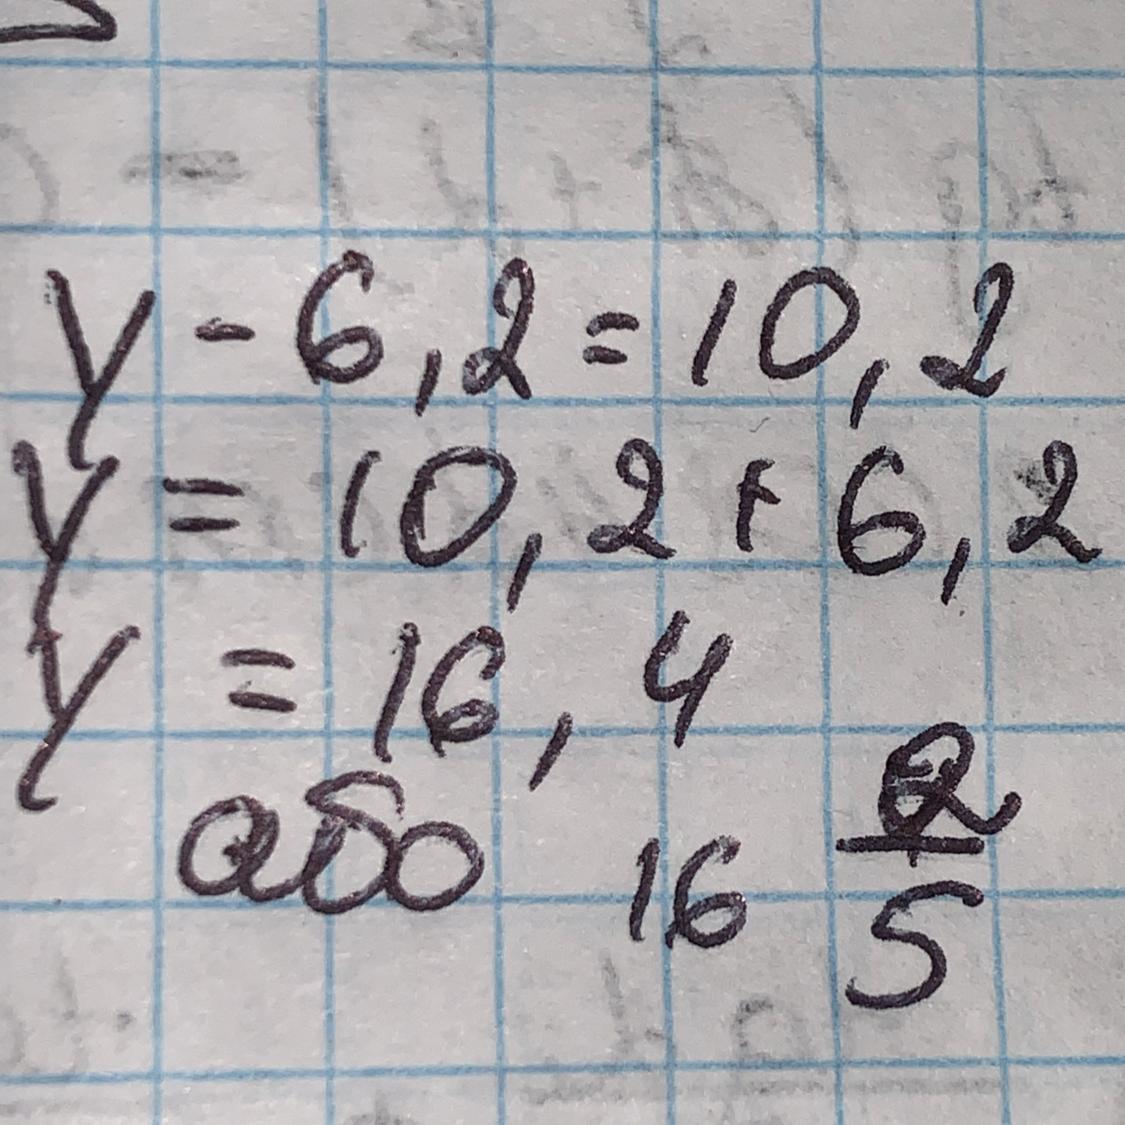 y - 6,2 = 10,2
y = 10,2 + 6,2
y = 16,4
або 16 2/5